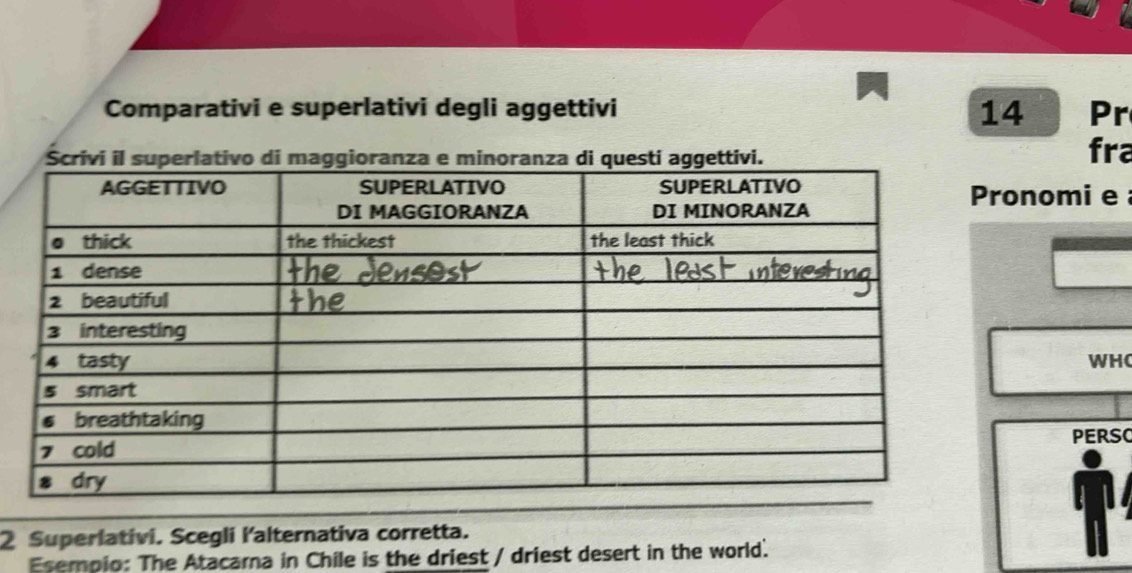 Comparativi e superlativi degli aggettivi
Scrivi il superlativo di maggioranza e minoranza di questi aggettivi.
AGGETTIVO SUPERLATIVO DI MAGGIORANZA SUPERLATIVO DI MINORANZA
0 thick the thickest the least thick
1 dense the densest the least interesting
2 beautiful the
3 interesting
4 tasty
5 smart
6 breathtaking
7 cold
8 dry
2 Superlativi. Scegli l'alternativa corretta.
Esempio: The Atacama in Chile is the driest / driest desert in the world.
14 Pr
fra
Pronomi e
WHO
PERSO